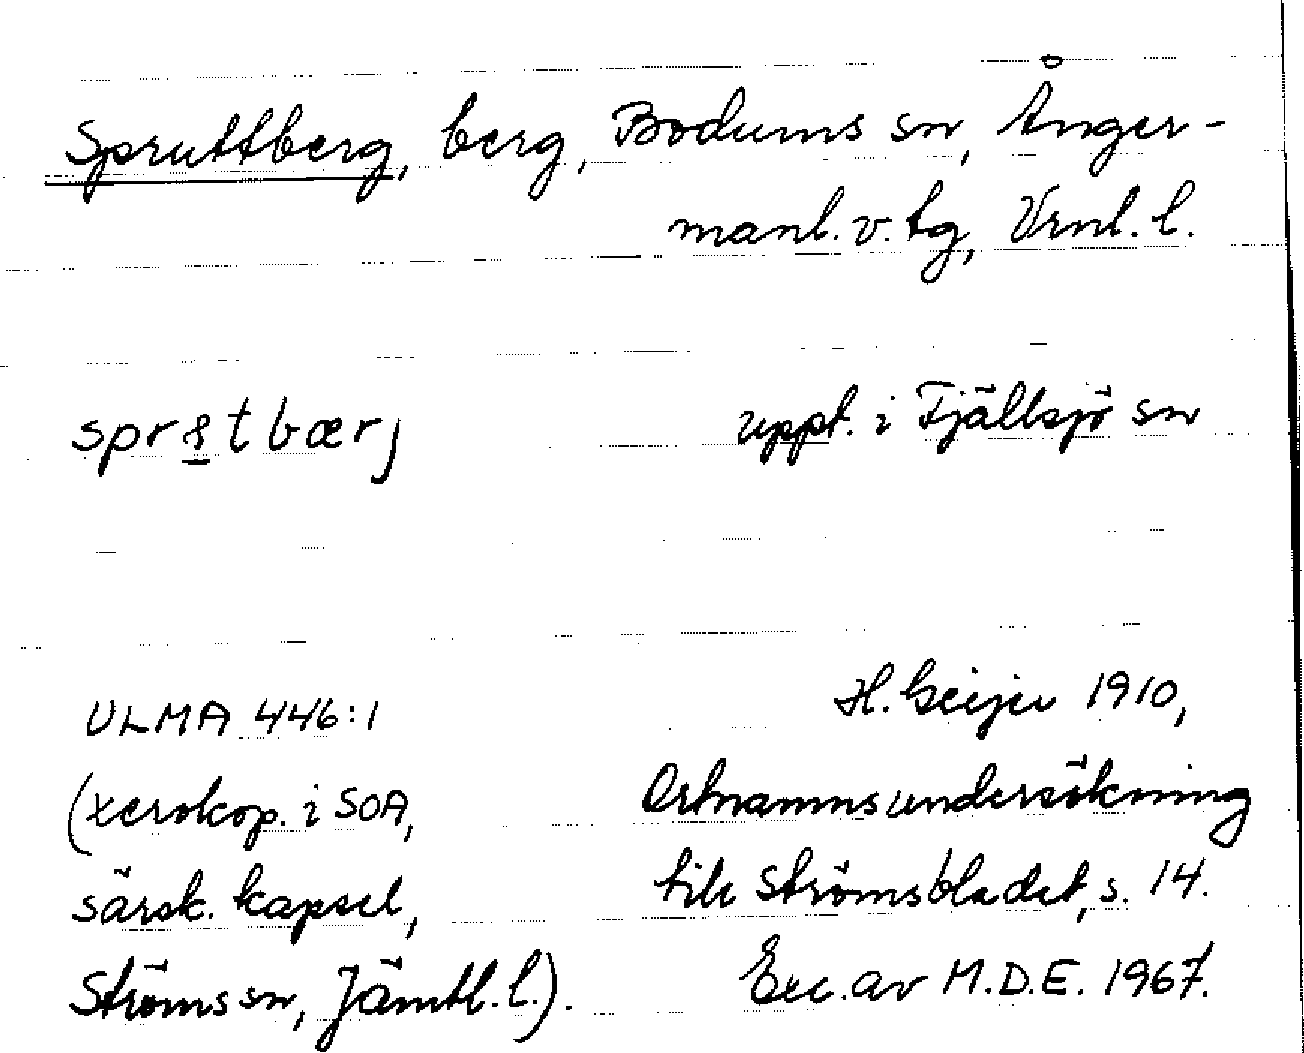 Spruttberg, berg, Bodums sn, Ånger-
manl. v. tg, Vrnl. l.
tbærj uppt. i Fjällsjö sn
ULMA 446:1 H. Geijer 1910,
(xerokop. i SOA, Ortnamnsundersökning
särsk. kapsel, till Strömsbladet, s. 14.
Ströms sn, Jämtl. l.). Exc. av M.D.E. 1967.